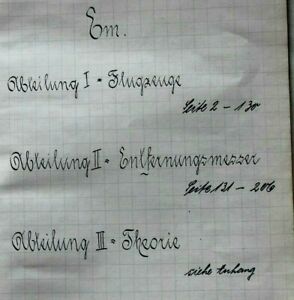 Em.
Abteilung I = Flugzeuge
Seite 2 - 130
Abteilung II = Entfernungsmesser
Seite 131 - 206
Abteilung III = Theorie
siehe Anhang